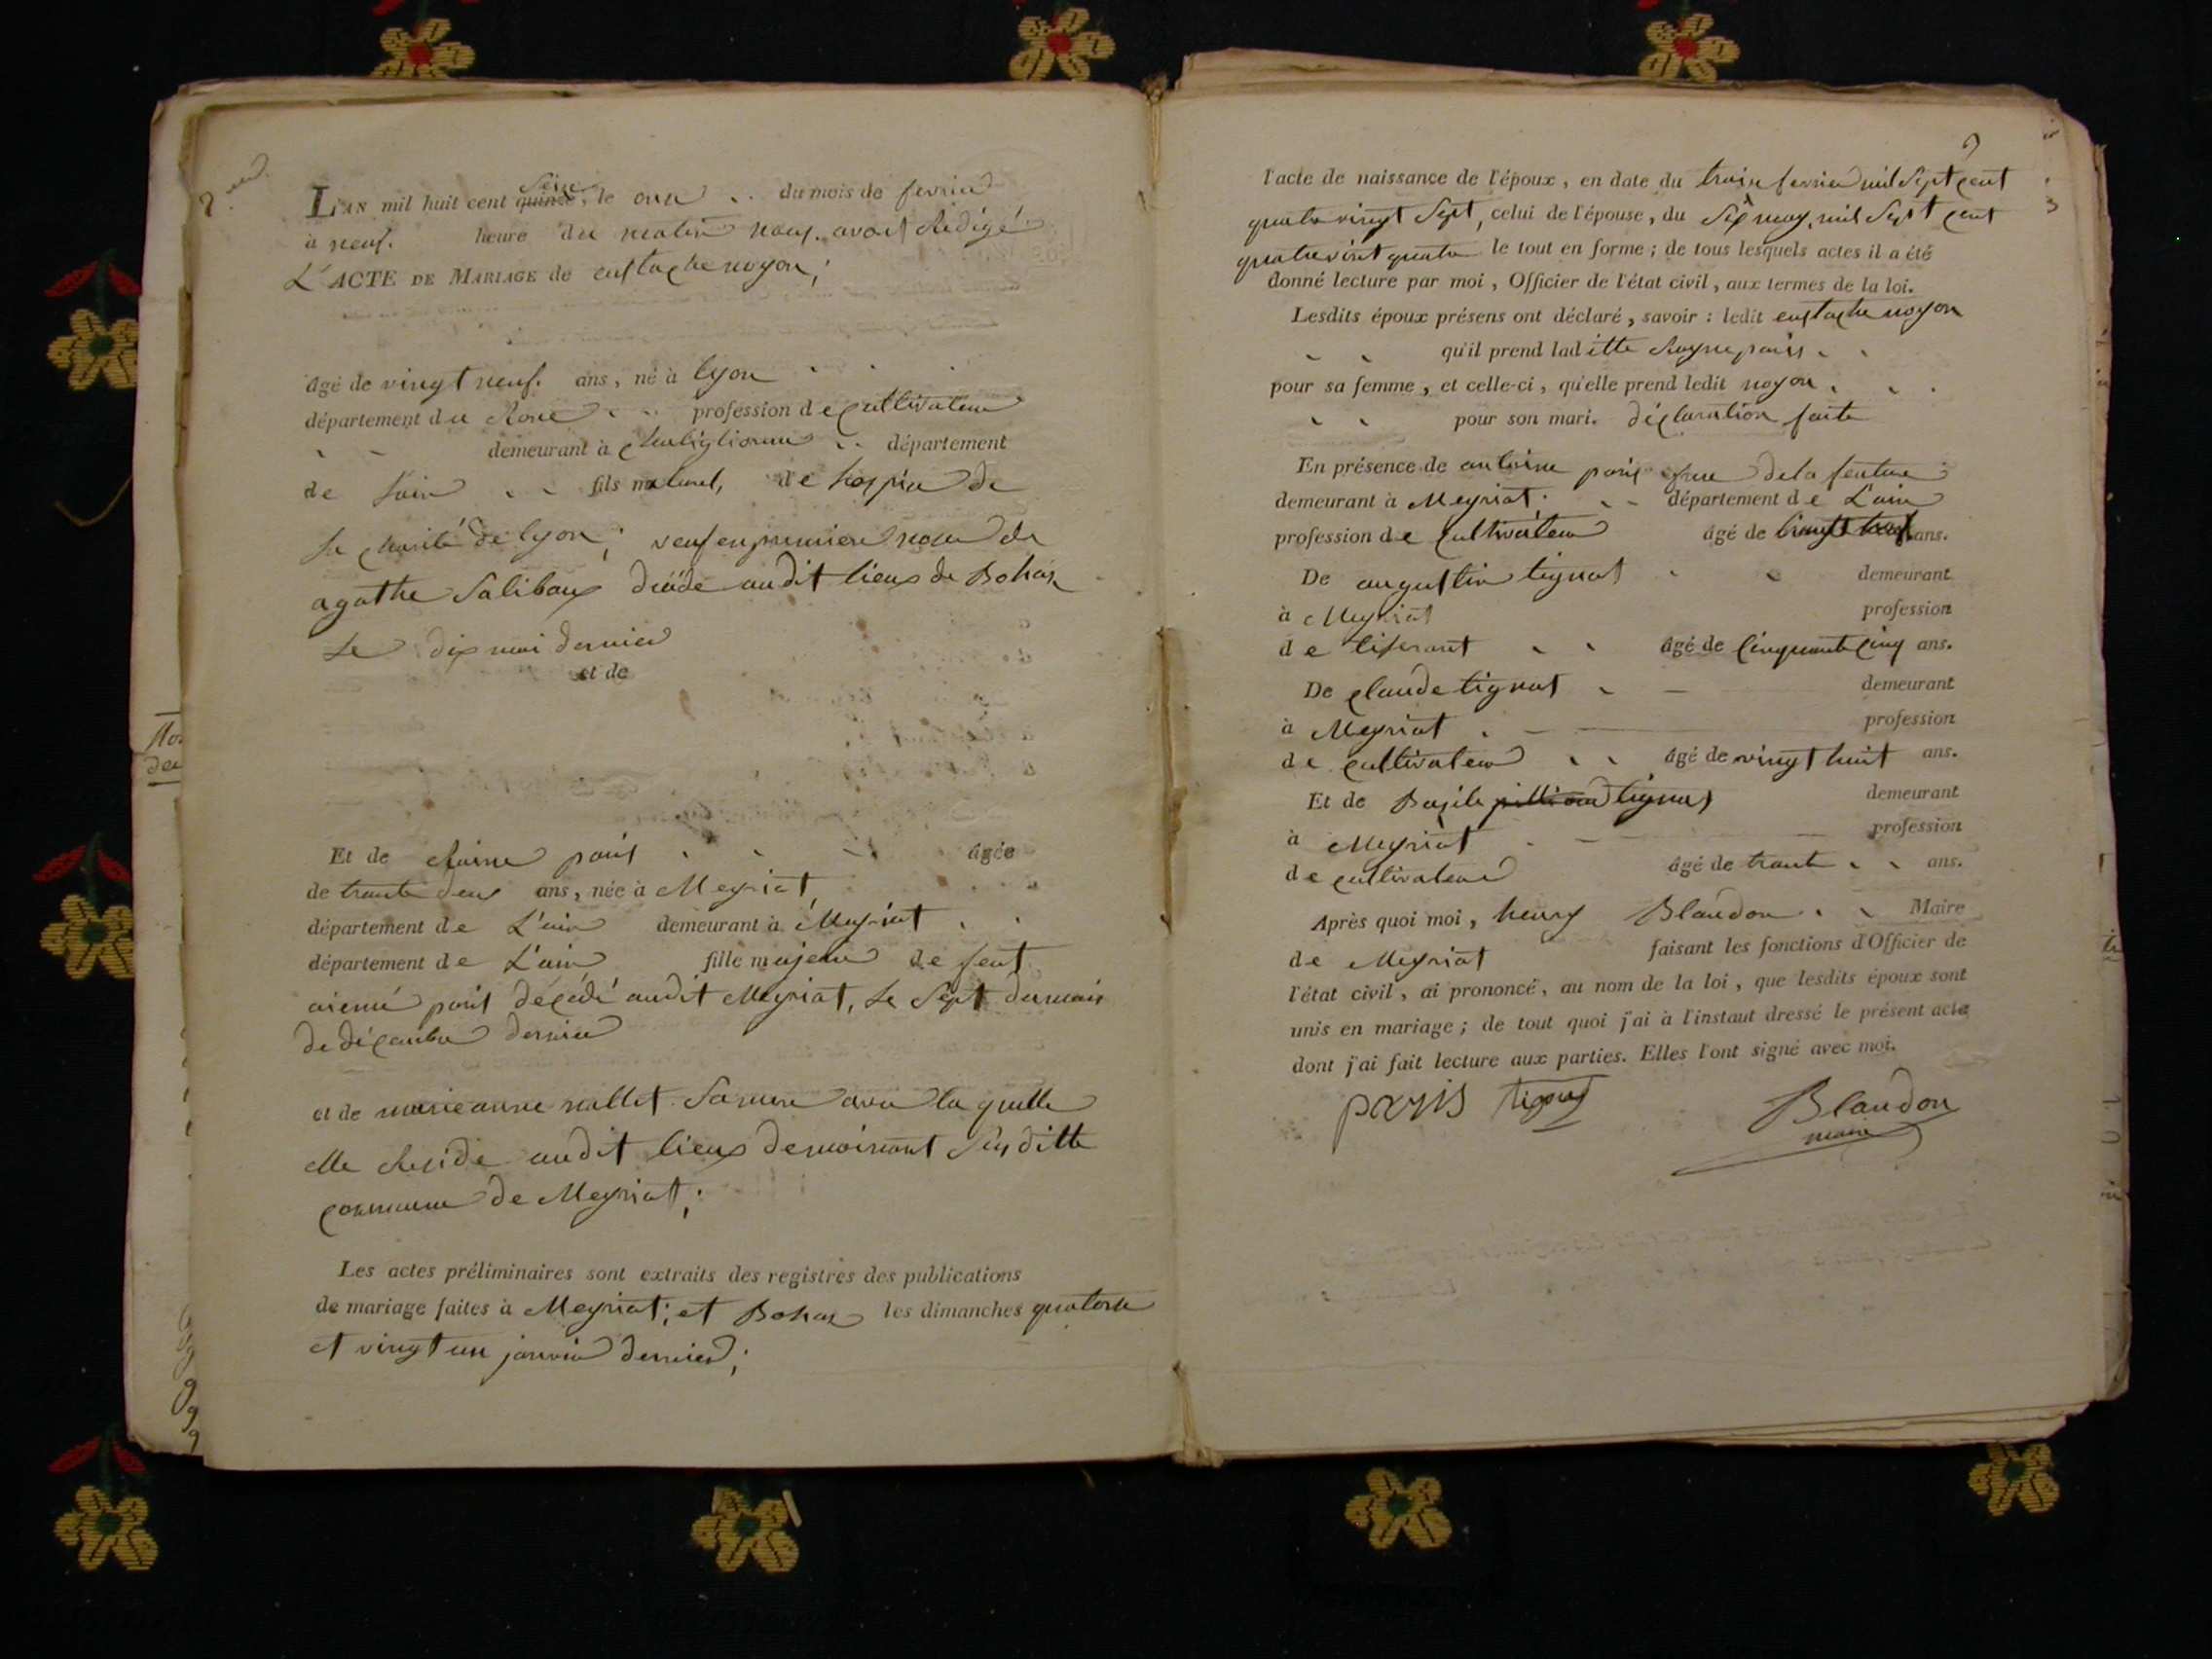 2.
L'AN mil huit cent quinze, Seize le onze du mois de fevrier
à neuf. heure du matin nous. avons Rédigé
L'ACTE DE MARIAGE de eustache noyon;
âgé de vingt neuf. ans, né à lyon
département du Rone profession de Cultivateur
demeurant à département
de lain fils naturel, de hospice de
la charité de lyon; veuf en premiere nose de
agathe Salibaux dudit lieux de Bohas
Le dix mai dernier
et de
Et de paris âgée
de trante deux ans, née à Meyriat,
département de L'ain demeurant à Meyriat
département de L'ain fille majeure de feut
aiemé paris décédé audit Meyriat, Le Sept du mois
de décembre dernier
et de marieanne mallet Sa mere avec la quelle
elle Reside audit lieux de moinant Susditte
commune de Meyriat;
Les actes préliminaires sont extraits des registres des publications
de mariage faites à Meyriat; et Bohas les dimanches quatorze
et vingt un janvier dernier;
l'acte de naissance de l'époux, en date du troise fevrier mil Sept cent
quatre vingt Sept, celui de l'épouse, du Six may, mil Sept cent
quatrevint quatre le tout en forme; de tous lesquels actes il a été
donné lecture par moi, Officier de l'état civil, aux termes de la loi.
Lesdits époux présens ont déclaré, savoir: ledit eustache noyon
qu'il prend laditte paris
pour sa femme, et celle-ci, qu'elle prend ledit noyon
pour son mari. déclaration faite
En présence de antoine paris frere de la feuture
demeurant à Meyriat. département de L'ain
profession de Cultivateur âgé de vingt ans.
De augustin tignat demeurant
à Meyriat profession
de tiserant âgé de Cinquante Cinq ans.
De Claude tignat demeurant
à Meyriat profession
de cultivateur âgé de vingt huit ans.
Et de Basile tignat demeurant
à Meyriat profession
de cultivateur âgé de trante ans.
Après quoi moi, henry Blandon Maire
de Meyriat faisant les fonctions d'Officier de
l'état civil, ai prononcé, au nom de la loi, que lesdits époux sont
unis en mariage; de tout quoi j'ai à l'instant dressé le présent acte
dont j'ai fait lecture aux parties. Elles l'ont signé avec moi.
paris tignat Blandon
maire